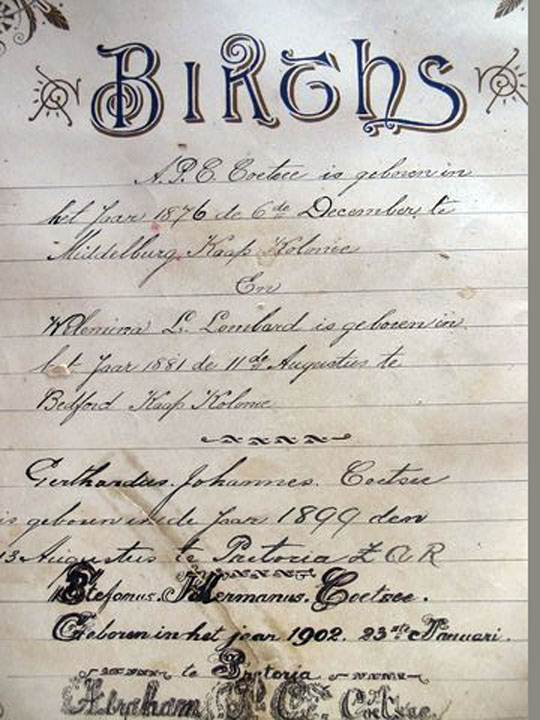 Births
A.P.C. Coetsee is geboren in
het Jaar 1876 de 6de December te
Middelburg Kaap Kolonie
En
L. Lombard is geboren in
het Jaar 1881 de 11de Augustus te
Bedford Kaap Kolonie
Gerthardus Johannes Coetsee
is geboren in de Jaar 1899 den
13 Augustus te Pretoria Z A R
Stefanus. Hermanus. Coetsee.
Geboren in het jaar 1902. 23ste Januari.
te Pretoria
Abraham P. C. Coetsee